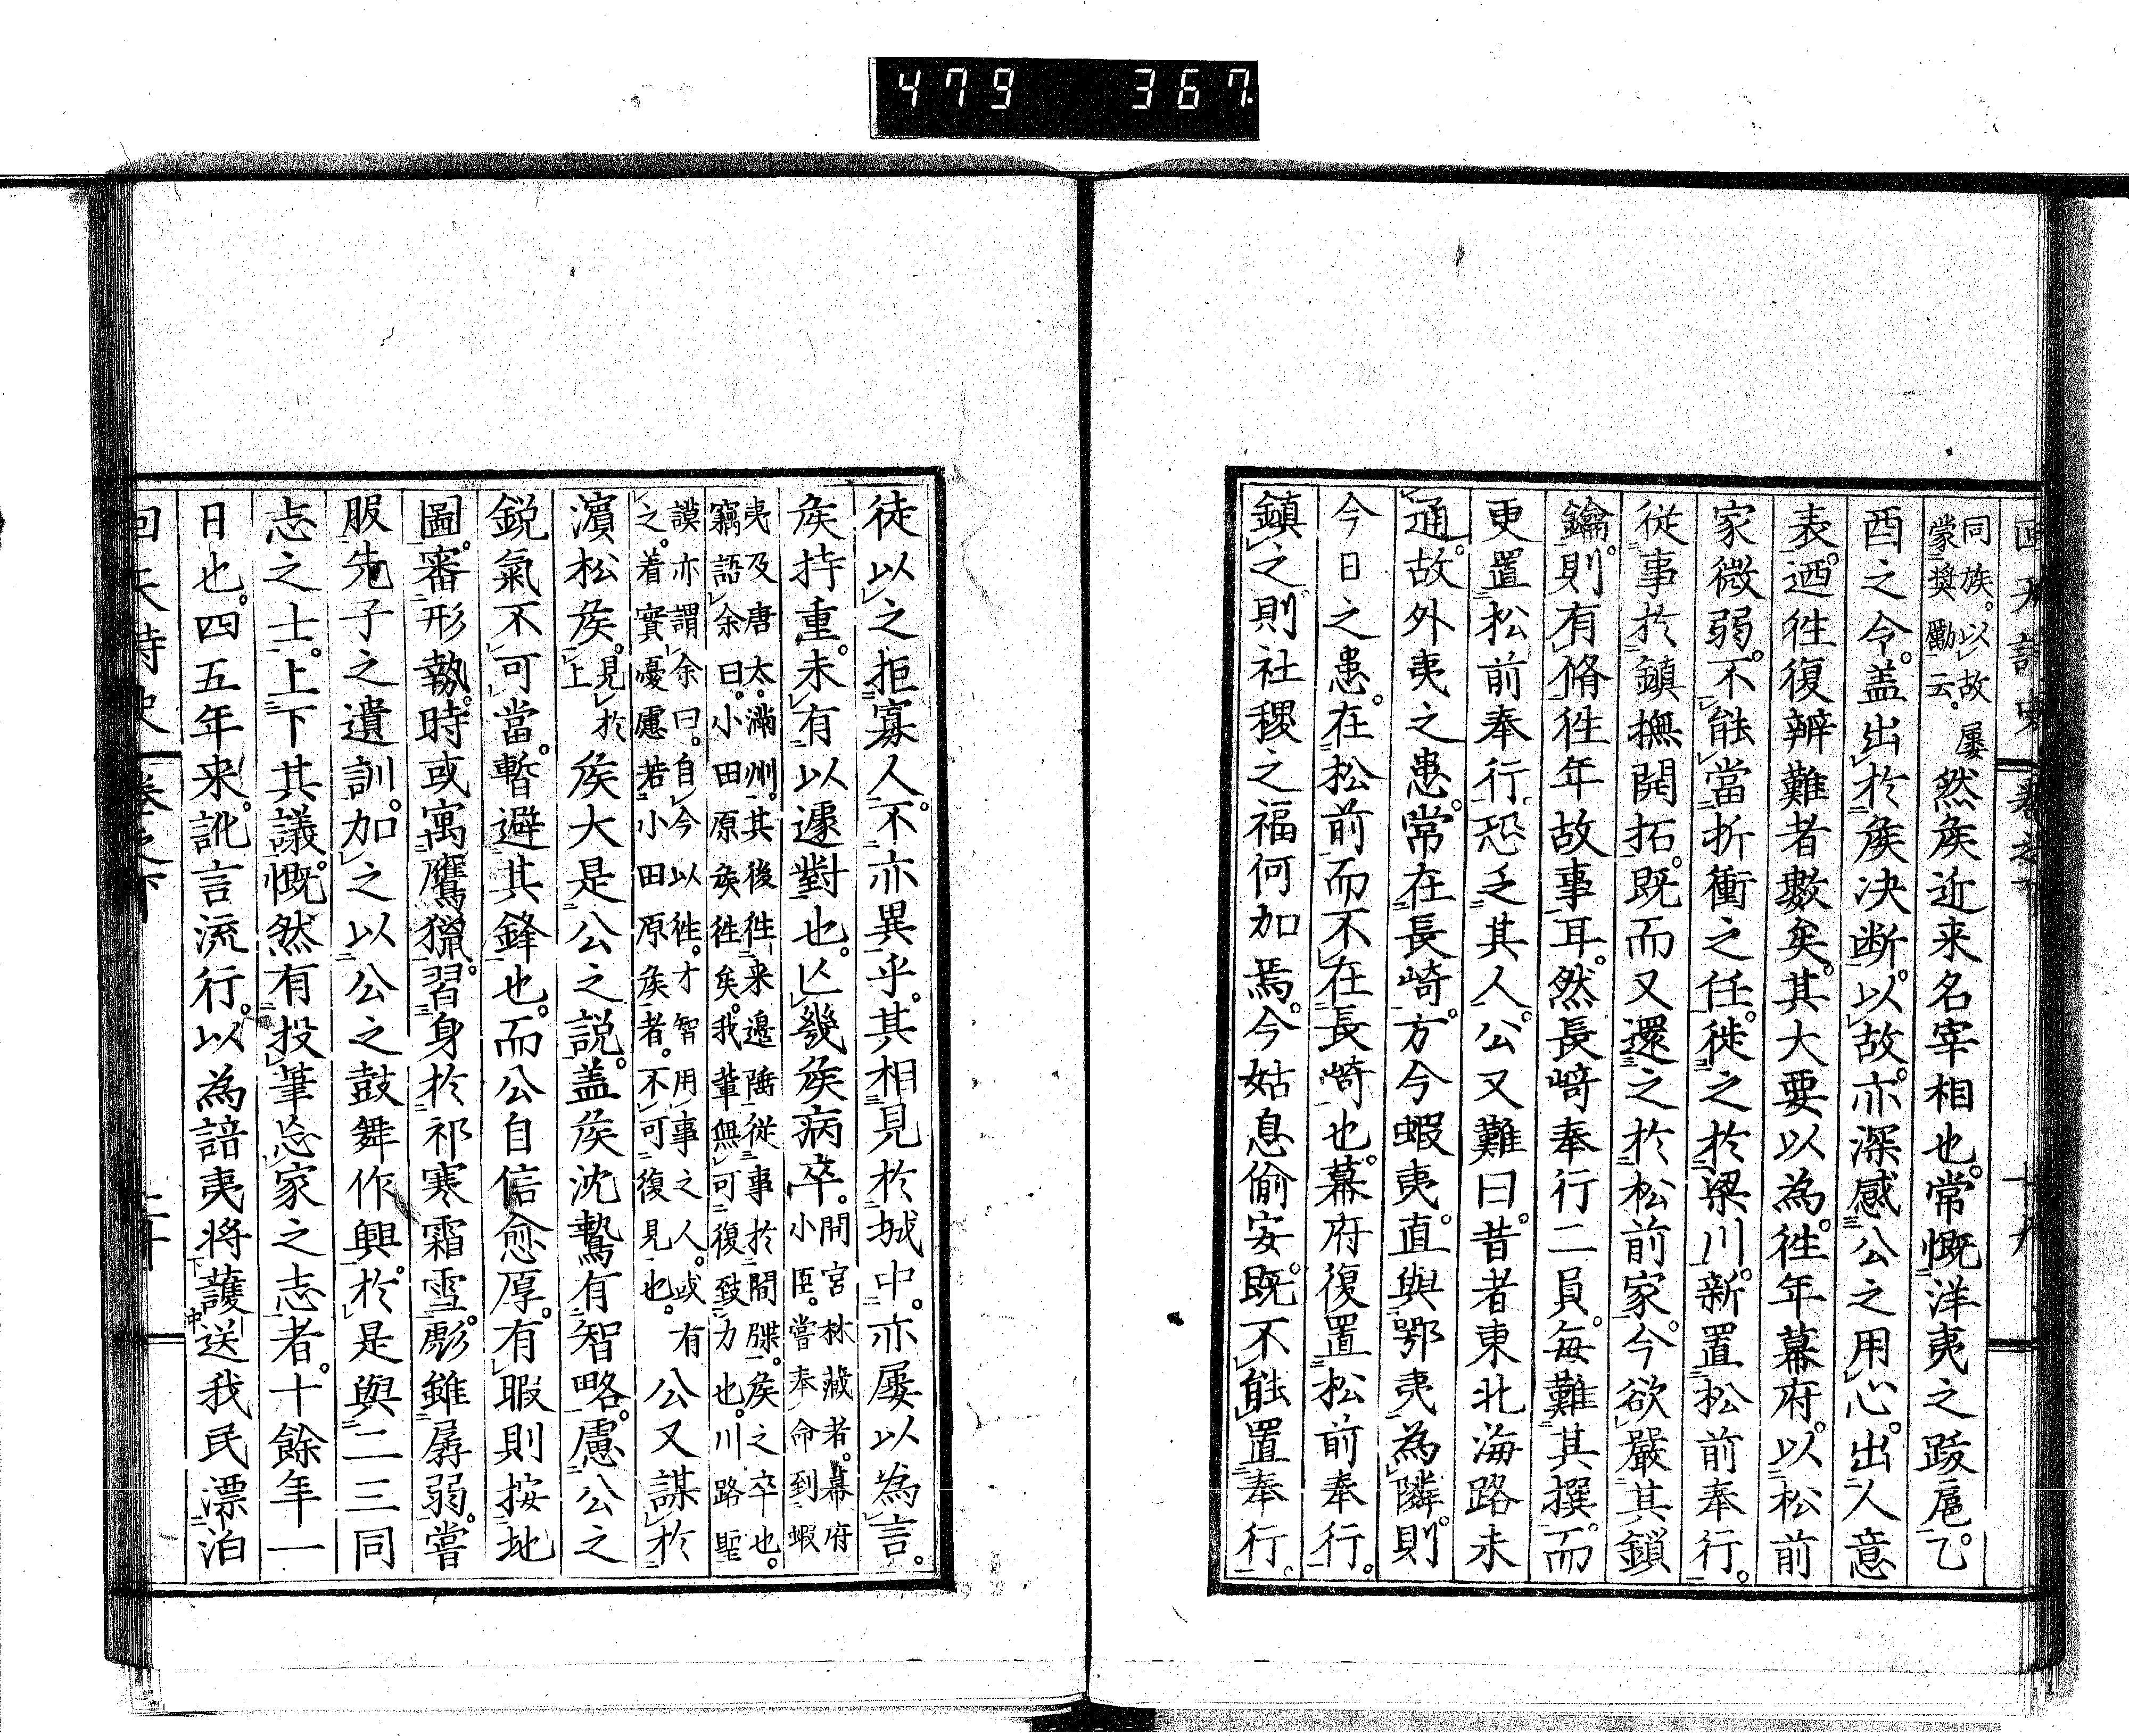 479 367
回天詩史 卷之下 十九
同族。以故屢
蒙獎勵云。
然矦近来名宰相也。常慨洋夷之跋扈。乙
酉之令。盖出於矦决断。以故。亦深感公之用心。出人意
表。迺徃復辨難者數矣。其大要以為。徃年幕府。以松前
家微弱。不能當折衝之任。徙之於梁川。新置松前奉行。
從事於鎮撫開拓。既而又還之於松前家。今欲嚴其鎖
鑰。則有脩徃年故事耳。然長﨑奉行二員。每難其撰。而
更置松前奉行。恐乏其人。公又難曰。昔者東北海路未
通。故外夷之患。常在長﨑。方今蝦夷。直與鄂夷為隣。則
今日之患。在松前而不在長﨑也。幕府復置松前奉行。
鎮之則社稷之福何加焉。今姑息偷安。既不能置奉行。
徒以之拒寡人。不亦異乎。其相見於城中。亦屢以為言。
矦持重。未有以遽對也。亾幾矦病卒。
間宮林藏者。幕府
小臣。嘗奉命到蝦
夷及唐太。滿州。其後徃来邉陲從事於間牒。矦之卒也。
竊語余曰。小田原矦徃矣。我輩無可復致力也。川路聖
謨亦謂余曰。自今以徃。才智用事之人。或有
之。着實憂慮若小田原矦者。不可復見也。
公又謀於
濵松矦。
見於
上
矦大是公之説。盖矦沈鷙有智略。慮公之
鋭氣不可當。暫避其鋒也。而公自信愈厚。有暇則按地
圖。審形勢。時或寓鷹獵。習身於祁寒霜雪。彪雖孱弱。嘗
服先子之遺訓。加之以公之鼓舞作興。於是與二三同
志之士。上下其議。慨然有投筆忘家之志者。十餘年一
日也。四五年来。訛言流行。以為諳夷将護送我民漂泊
回天詩史 卷之下 二十